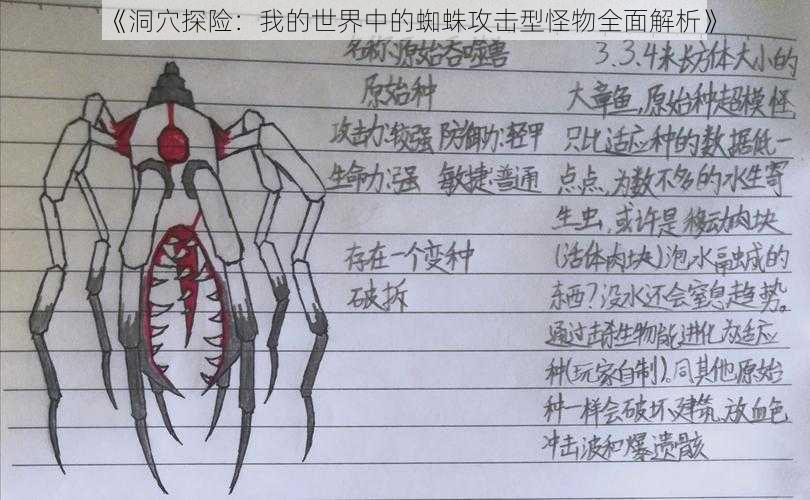 《洞穴探险：我的世界中的蜘蛛攻击型怪物全面解析》
名称:原始吞噬兽
原始种
攻击力:较强 防御力:轻甲
生命力:强 敏捷:普通
存在一个变种
破拆
3.3.4米长方体大小的
大章鱼,原始种超模怪
只比适应种的数据低一
点点,为数不多的水生寄
生虫,或许是移动肉块
(活体肉块)泡水融成的
东西?没水还会窒息趋势。
通过击杀生物能进化为适应
种(玩家自制)。同其他原始
种一样会破坏建筑,放血色
冲击波和爆遗骸